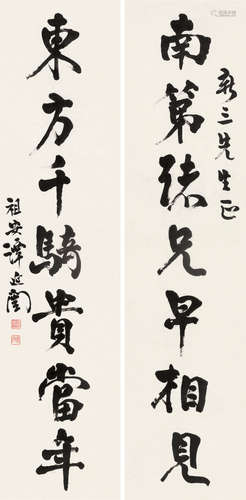 三先生正
南第諸兄早相見
東方千騎貴當年
祖安譚延闓